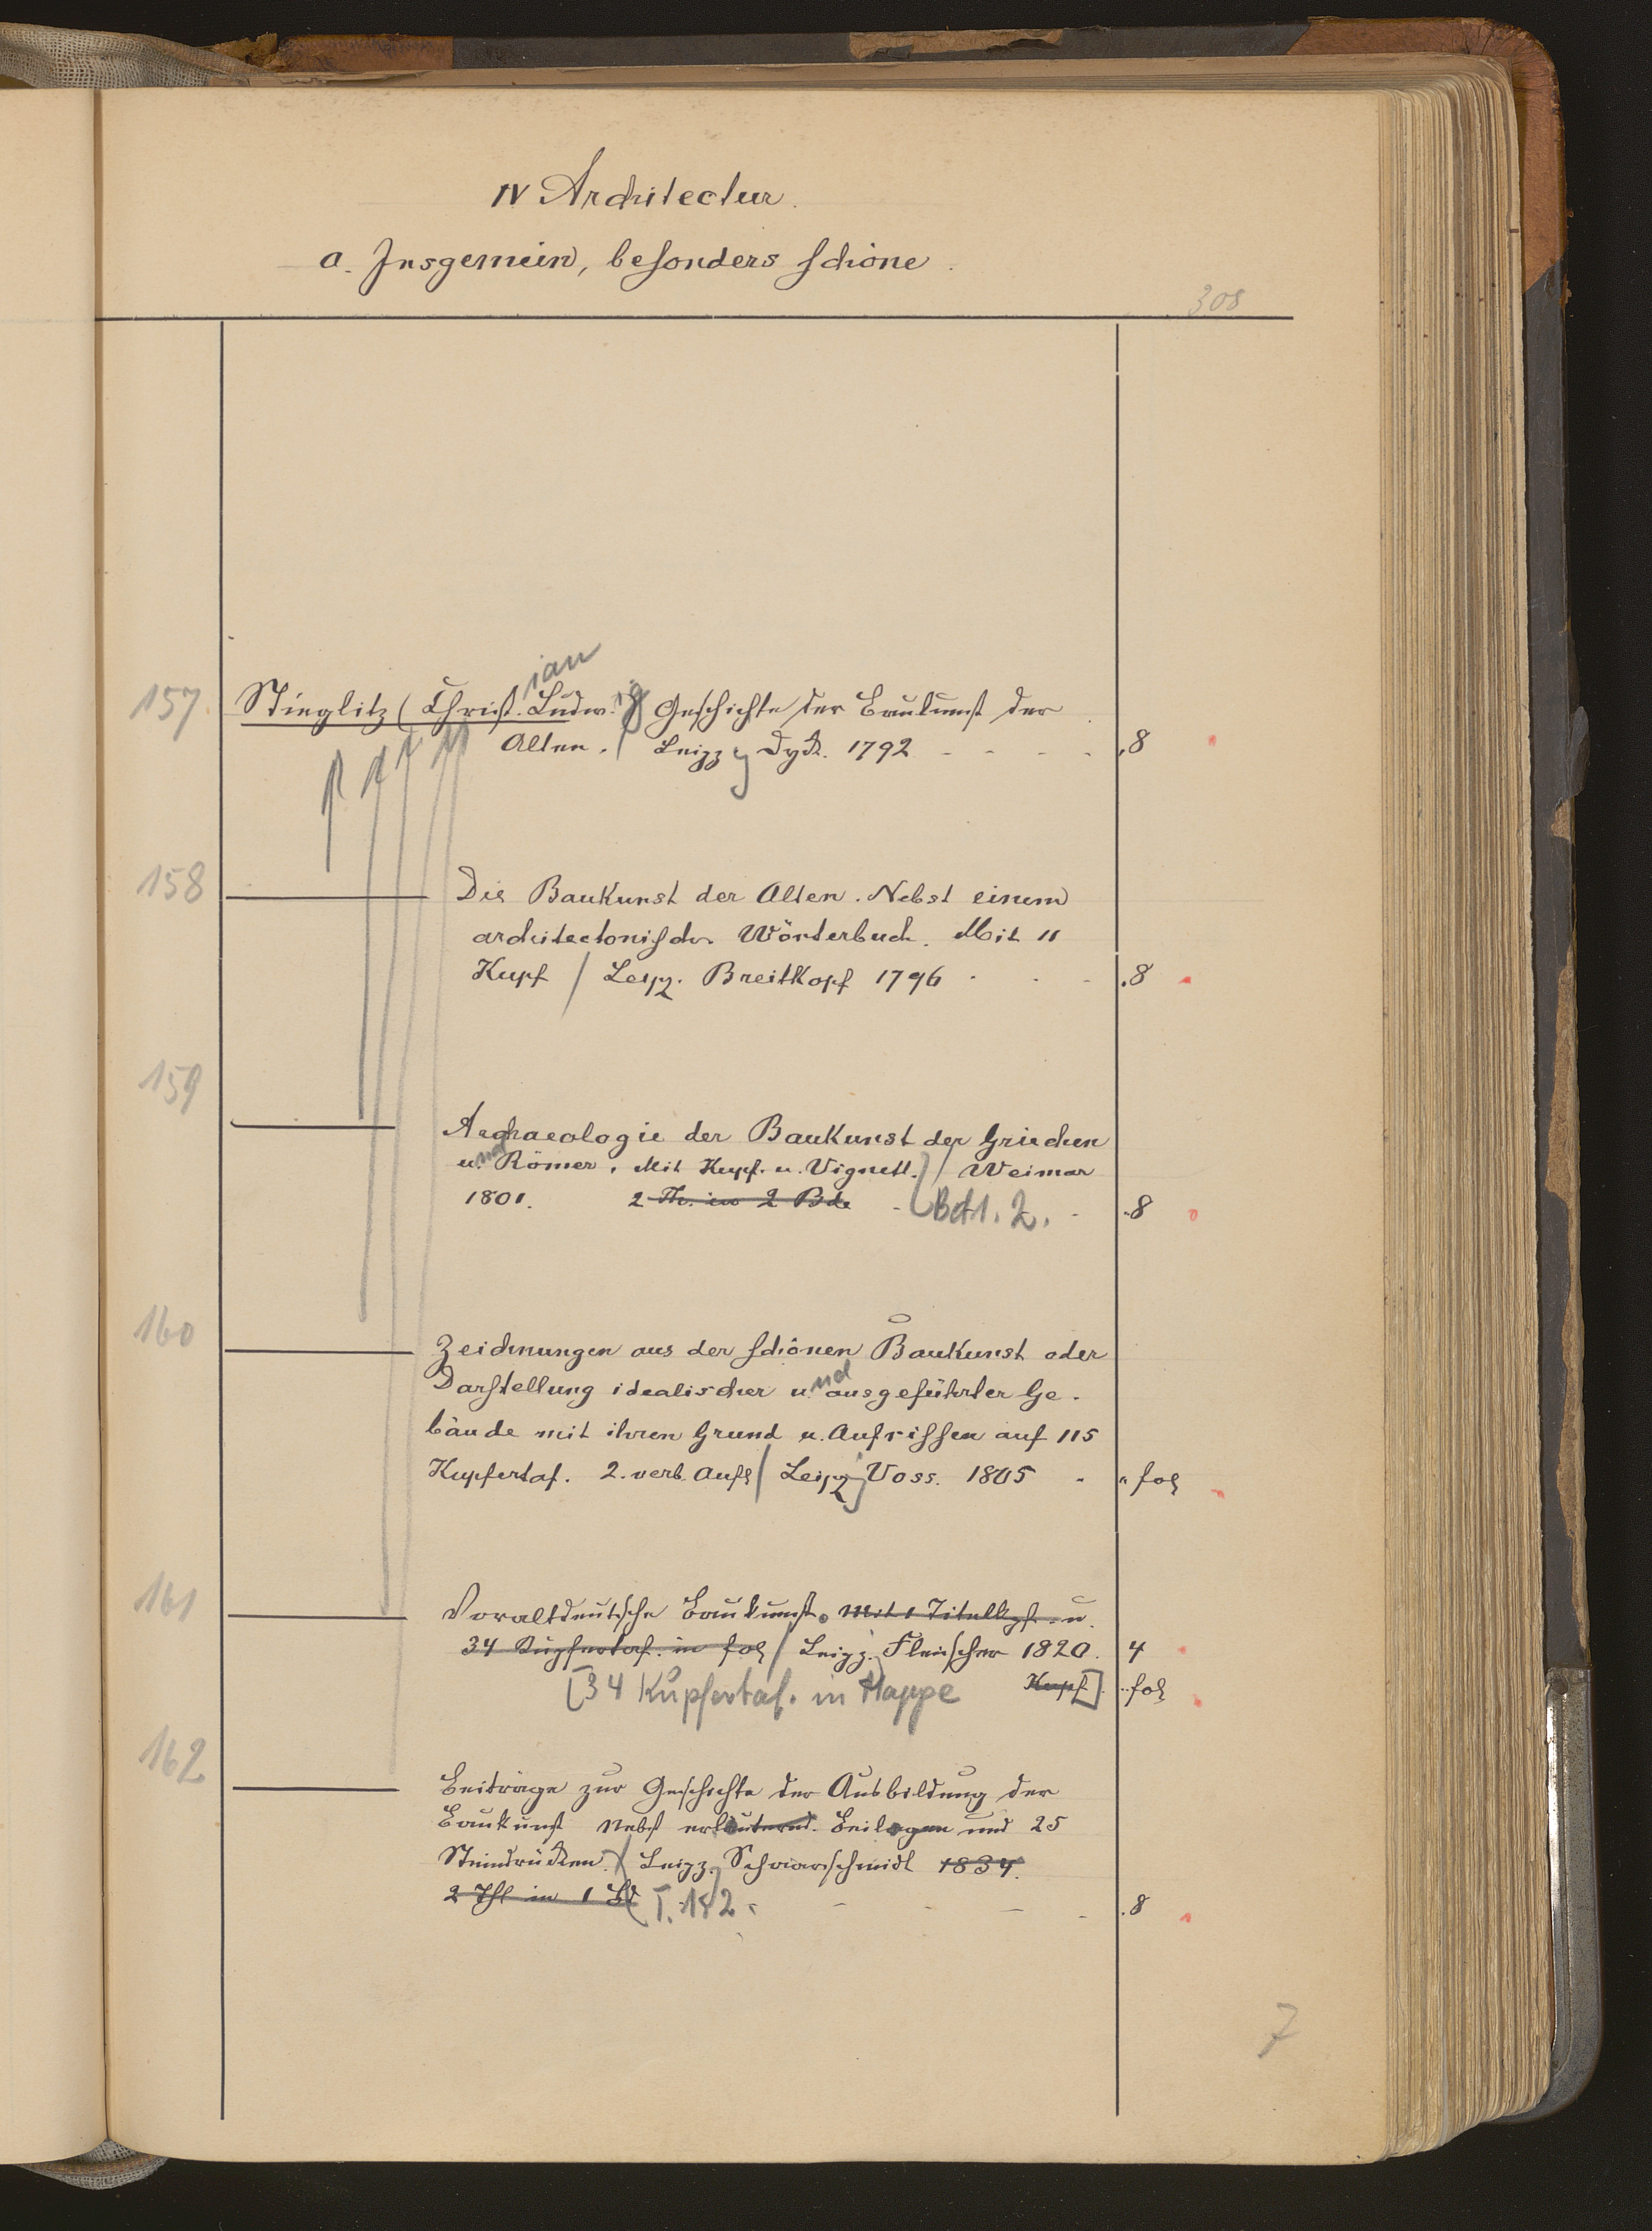 IV Architectur.
a. Insgemein, besonders schöne.
308
157. Stieglitz (Christian Ludwig) Geschichte der Baukunst der
Alten. / Leipz, Dyk. 1792 - - - - . 8
158 Die Baukunst der Alten. Nebst einem
architectonischen Wörterbuch. Mit 11
Kupf / Leipz. Breitkopf 1796 - - - . 8
159 Archaeologie der Baukunst der Griechen
und Römer. Mit Kupf. u. Vignett. / Weimar
1801. 2 Th. in 2 Bde - Bd 1. 2. - . 8
160 Zeichnungen aus der schönen Baukunst oder
Darstellung idealischer und ausgeführter Ge-
bäude mit ihren Grund u. Aufrissen auf 115
Kupfertaf. 2. verb. Aufl / Leipz, Voss. 1805 - . fol
161 Von altdeutscher Baukunst. Mit 1 Titelkpf. u.
34 Kupfertaf. in fol / Leipz. Fleischer 1820. 4
[34 Kupfertaf. in Mappe Kupf]. . fol
162 Beiträge zur Geschichte der Ausbildung der
Baukunst Nebst erläuternd. Beilagen und 25
Steindrücken. / Leipz, Schaarschmidt 1834.
2 Thl in 1 Bd T. 1 & 2. - - - - . 8
7